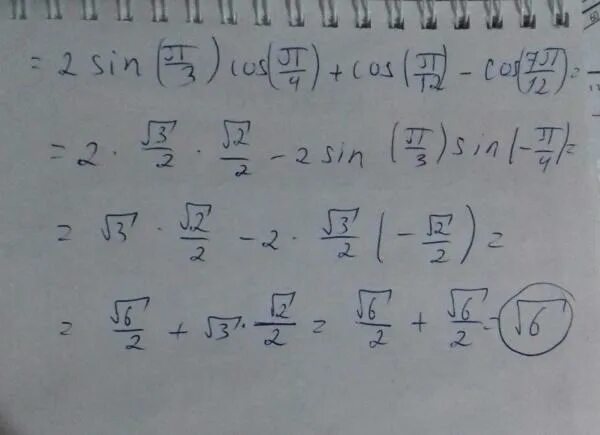 = 2 sin (π/3) cos(π/4) + cos (π/12) - cos(7π/12) =
= 2 · √3/2 · √2/2 - 2 sin (π/3) sin (-π/4) =
= √3 · √2/2 - 2 · √3/2 (-√2/2) =
= √6/2 + √3 · √2/2 = √6/2 + √6/2 = √6